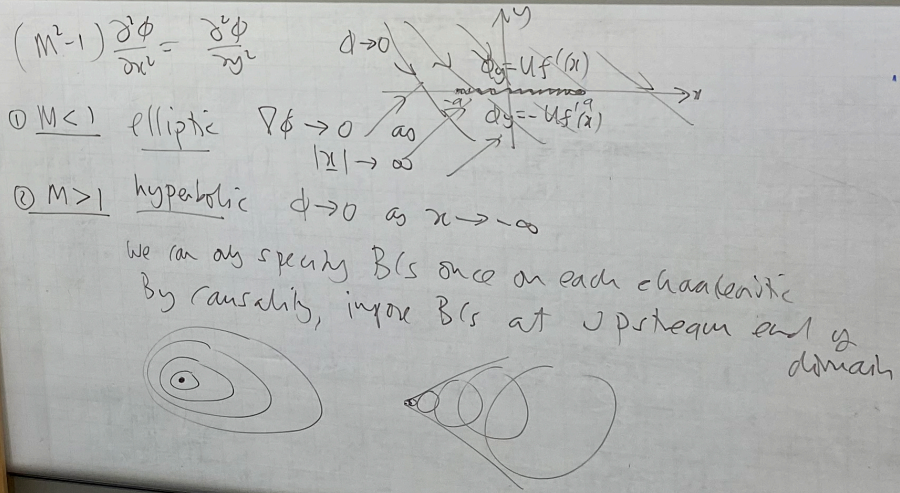 (M²-1) ∂²ϕ/∂x² = ∂²ϕ/∂y²
ϕ→0
y
ϕy=Uf'(x)
x
-a
a
ϕy=-Uf'(x)
① M<1 elliptic ∇ϕ → 0 as
|x| → ∞
② M>1 hyperbolic ϕ→0 as x→-∞
We can only specify BCs once on each characteristic
By causality, impose BCs at upstream end of
domain